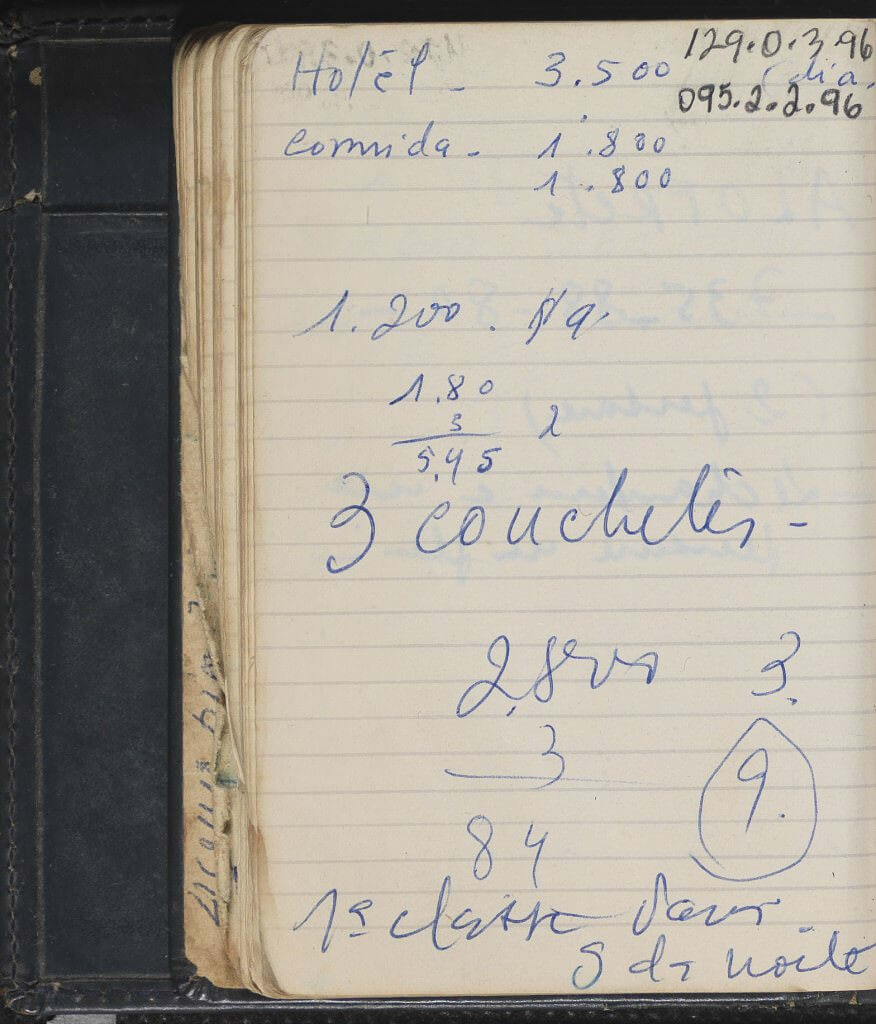 129.0.3.96
Hotel - 3.500 (dia.
095.2.2.96
comida - 1.800
1.800
1.200.
1.80
3 2
5.45
3 couchetes -
2.800 3.
3
9.
84
1ª classe
9 da noite